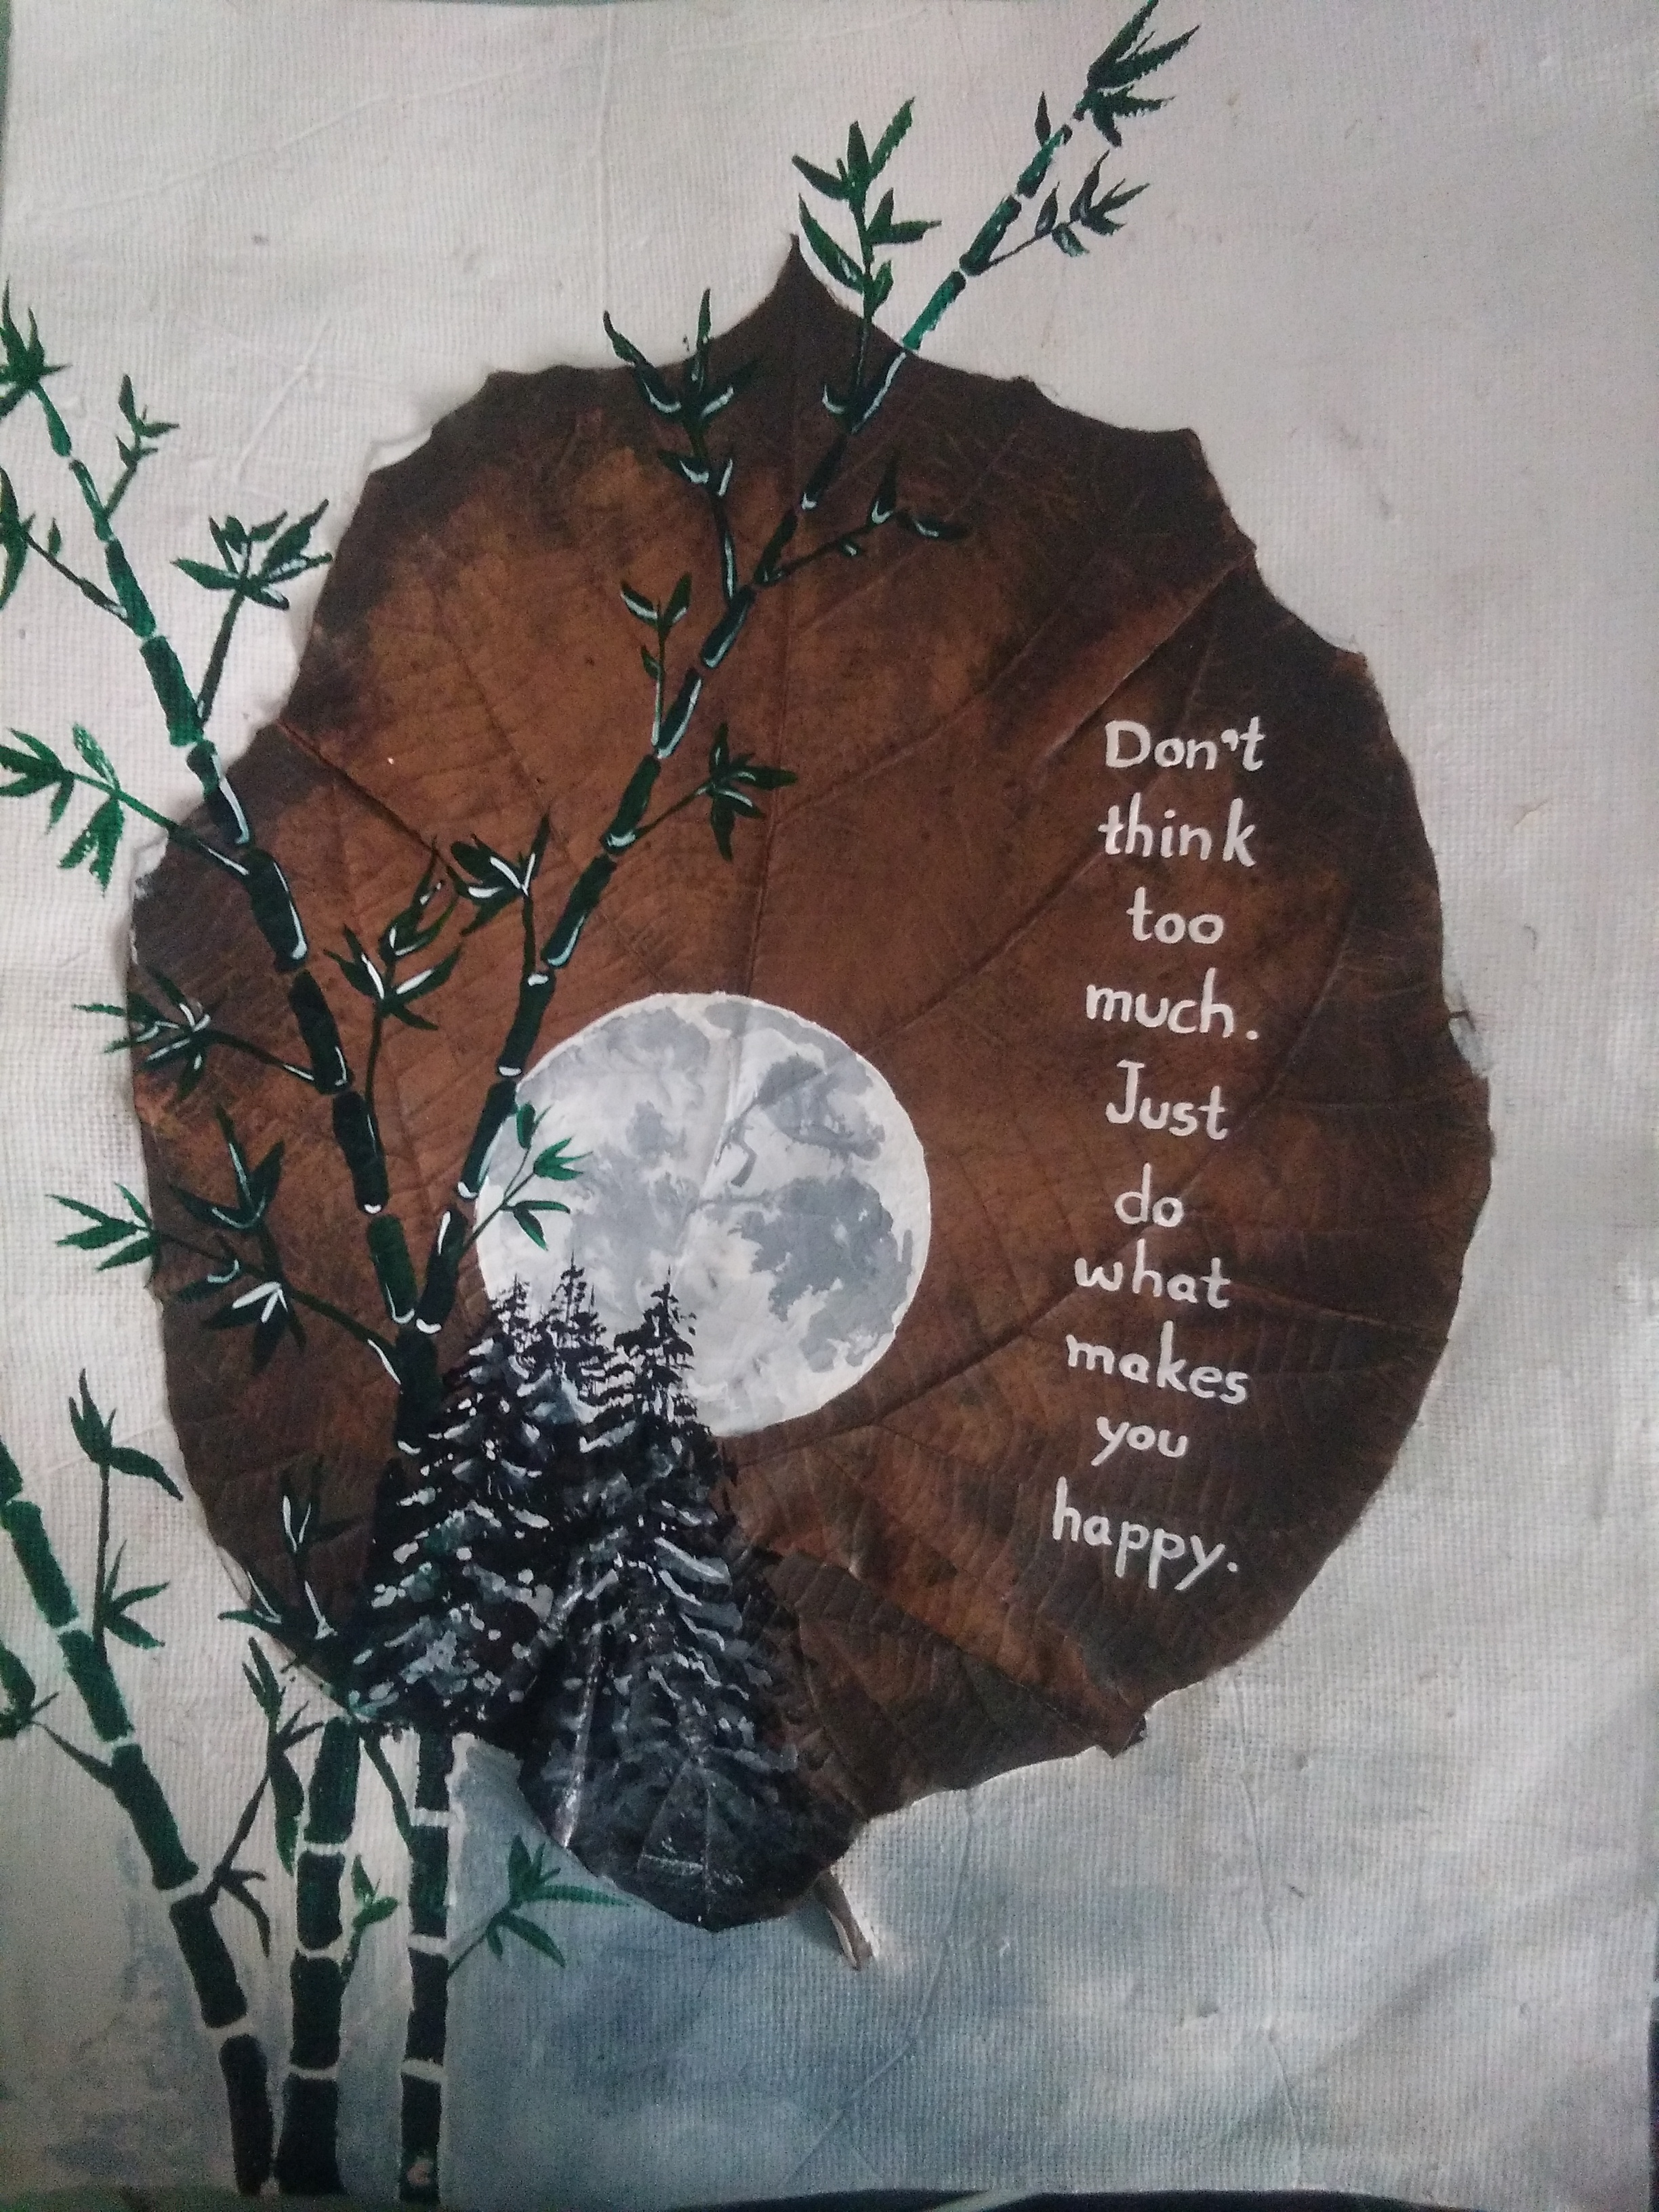 Don't
think
too
much.
Just
do
what
makes
you
happy.